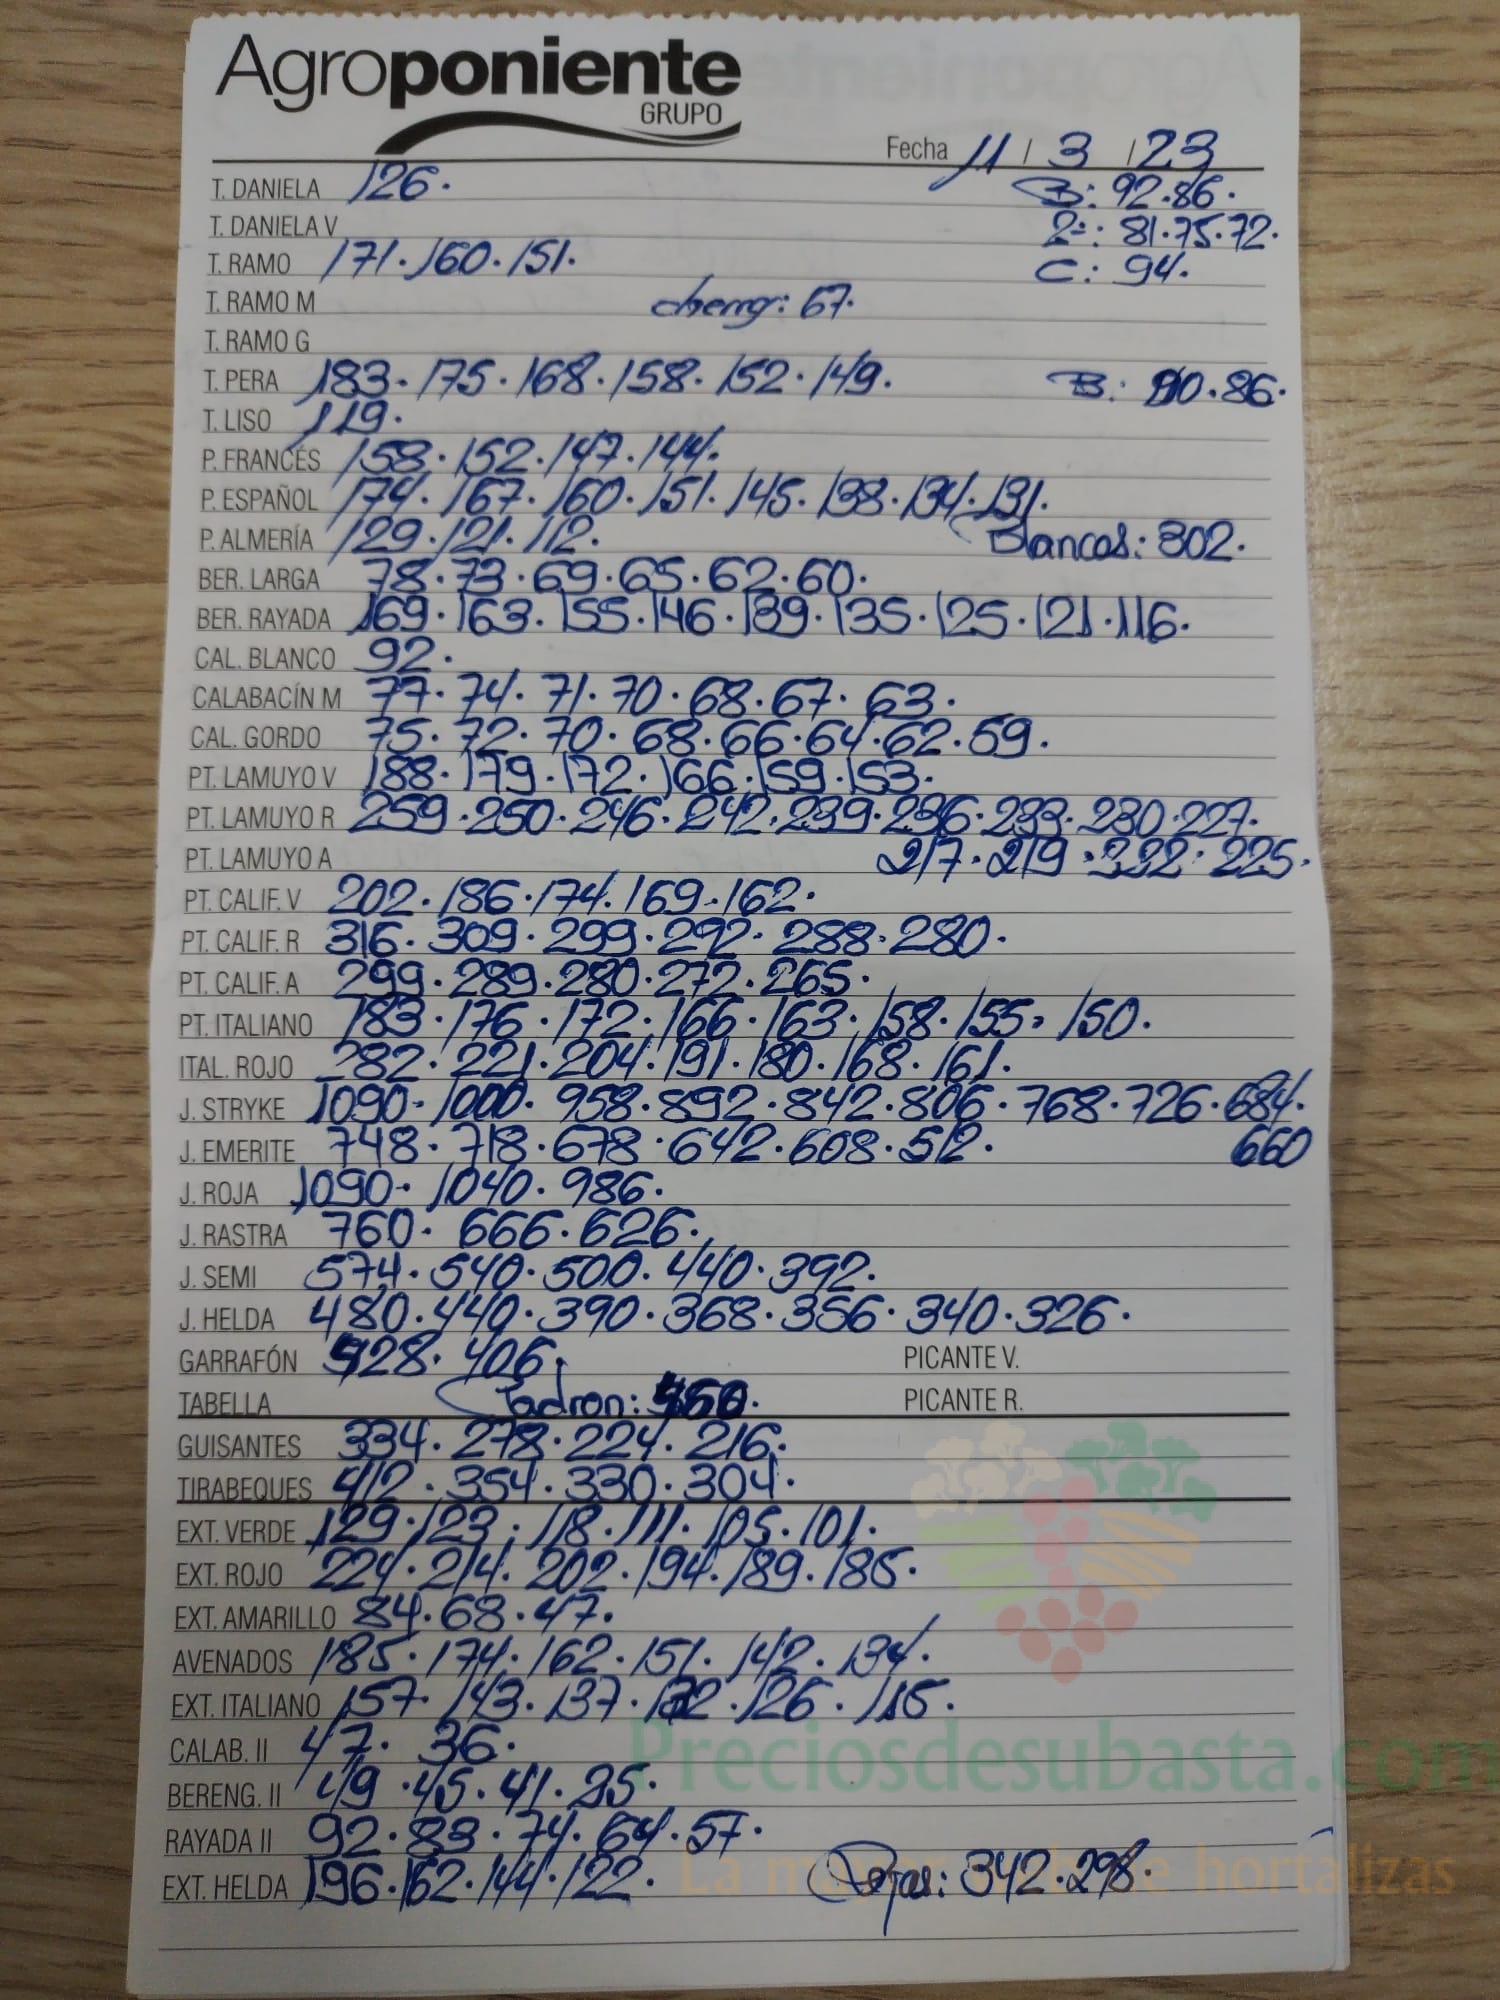 Agroponiente
GRUPO
Fecha 11 / 3 / 23
T. DANIELA 126. B: 92.86.
T. DANIELA V 2ª: 81.75.72.
T. RAMO 171.160.151. C: 94.
T. RAMO M cherry: 67.
T. RAMO G
T. PERA 183.175.168.158.152.149. B: 90.86.
T. LISO 119.
P. FRANCÉS 158.152.147.144.
P. ESPAÑOL 174.167.160.151.145.138.134.131.
P. ALMERÍA 129.121.112. Blancas: 302.
BER. LARGA 78.73.69.65.62.60.
BER. RAYADA 169.163.155.146.139.135.125.121.116.
CAL. BLANCO 92.
CALABACÍN M 77.74.71.70.68.67.63.
CAL. GORDO 75.72.70.68.66.64.62.59.
PT. LAMUYO V 188.179.172.166.159.153.
PT. LAMUYO R 259.250.246.242.239.236.233.230.227.
PT. LAMUYO A 217.219.222.225.
PT. CALIF. V 202.186.174.169.162.
PT. CALIF. R 316.309.299.292.288.280.
PT. CALIF. A 299.289.280.272.265.
PT. ITALIANO 183.176.172.166.163.158.155.150.
ITAL. ROJO 282.221.204.191.180.168.161.
J. STRYKE 1090.1000.958.892.842.806.768.726.684.
J. EMERITE 748.718.678.642.608.512. 660
J. ROJA 1090.1040.986.
J. RASTRA 760.666.626.
J. SEMI 574.540.500.440.392.
J. HELDA 480.440.390.368.356.340.326.
GARRAFÓN 928.406. PICANTE V.
TABELLA Padron: PICANTE R.
GUISANTES 334.278.224.216.
TIRABEQUES 412.354.330.304.
EXT. VERDE 129.123.118.111.105.101.
EXT. ROJO 224.214.202.194.189.185.
EXT. AMARILLO 84.68.47.
AVENADOS 185.174.162.151.142.134.
EXT. ITALIANO 157.143.137.132.126.115.
CALAB. II 47.36.
Preciosdesubasta.com
BERENG. II 49.45.41.35.
RAYADA II 92.83.74.64.57.
EXT. HELDA 196.162.144.122. Rojas: 342.298.
La de hortalizas